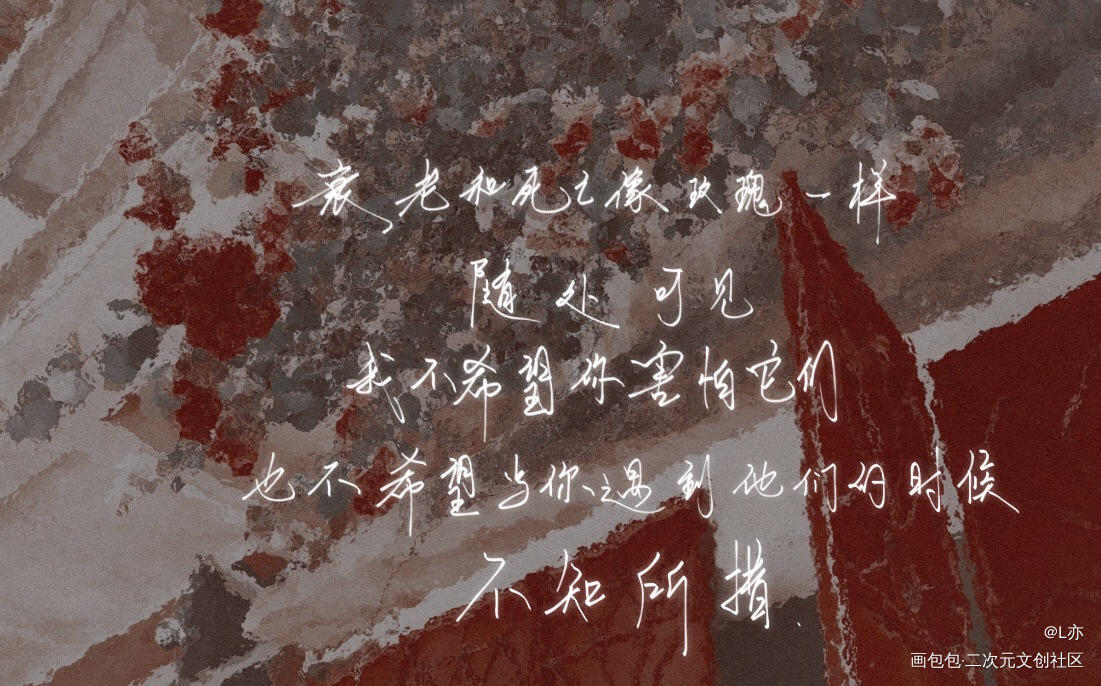 衰老和死亡像玫瑰一样
随处可见
我不希望你害怕它们
也不希望当你遇到他们的时候
不知所措.
@L亦
画包包·二次元文创社区